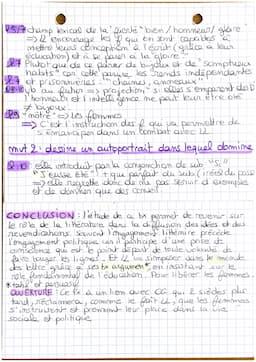 champ lexical de la fierté "bien / honneur / gloire
=> LL encourage les ♀ qui en sont capables à
mettre leurs conceptions à l'écrit (grâce à leur
éducation) et à se parer de la gloire
plutôt que de se parer de bijoux et de "somptueux
habits" car cette parure les rends indépendantes
et prisonnières : "chaînes, anneaux"
=> projection : si elles s'emparent des
honneur et l'intelligence ne peut leur être ôté
"nôtre" => les femmes
=> c'est l'instruction des ♀ qui va permettre de
s'émanciper dans un combat avec LL
mvt 2 : dessine un autoportrait dans lequel domine
elle introduit par la conjonction de sub "si"
"eusse été" : + que parfait du sub (irréel du passé)
=> elle regrette donc de ne pas servir d'exemple
et de donner que des conseils
CONCLUSION : l'étude de ce tx permet de revenir sur
le rôle de la littérature dans la diffusion des idées et des
revendications. Souvent l'engagement littéraire précède
l'engagement politique, un ♀ politique d'une prise de
conscience qui est le point de départ de toute volonté de
faire bouger les lignes. Et LL va s'imposer dans le monde
des lettres grâce à ses tx argumen en insistant sur le
rôle fondamental de l'éducation. Pour libérer les femmes.
et persuasif
OUVERTURE : Ce tx a un lien avec
tard, réclamera, comme le fait LL, que les femmes
s'instruisent et prennent leur place dans la vie
sociale et politique